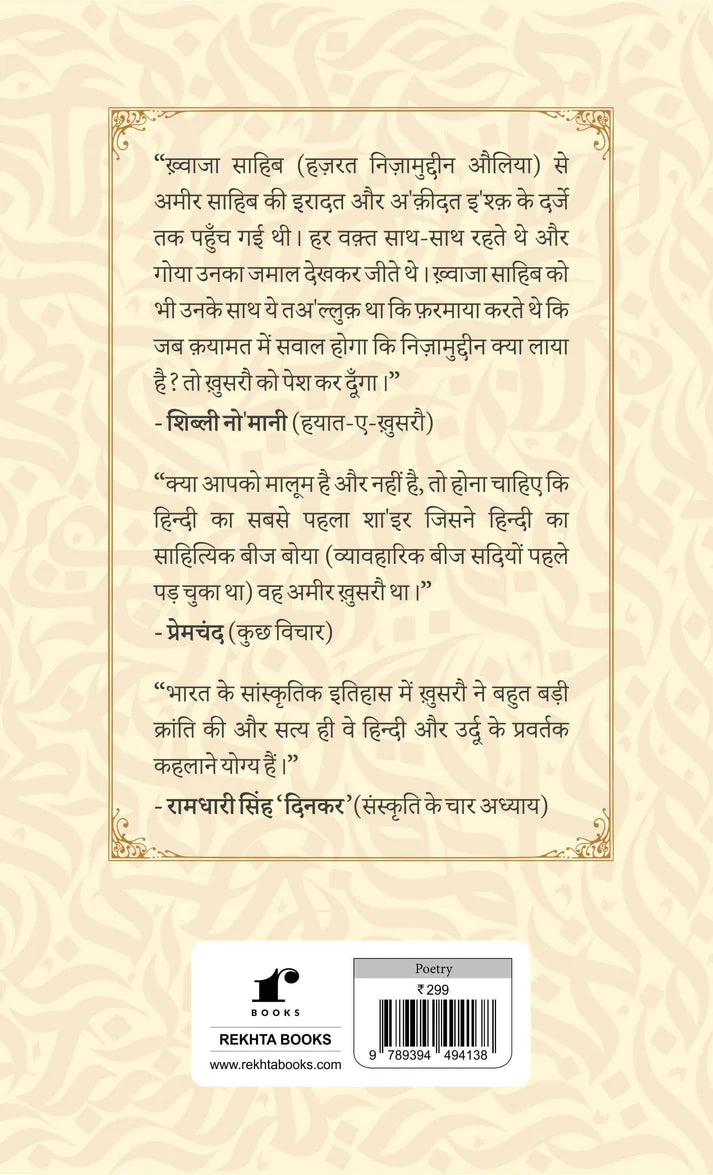 “ख़्वाजा साहिब (हज़रत निज़ामुद्दीन औलिया) से
अमीर साहिब की इरादत और अ'क़ीदत इ'श्क़ के दर्जे
तक पहुँच गई थी। हर वक़्त साथ-साथ रहते थे और
गोया उनका जमाल देखकर जीते थे। ख़्वाजा साहिब को
भी उनके साथ ये तअ'ल्लुक़ था कि फ़रमाया करते थे कि
जब क़यामत में सवाल होगा कि निज़ामुद्दीन क्या लाया
है? तो ख़ुसरौ को पेश कर दूँगा।”
- शिब्ली नो'मानी (हयात-ए-ख़ुसरौ)
“क्या आपको मालूम है और नहीं है, तो होना चाहिए कि
हिन्दी का सबसे पहला शा'इर जिसने हिन्दी का
साहित्यिक बीज बोया (व्यावहारिक बीज सदियों पहले
पड़ चुका था) वह अमीर ख़ुसरौ था।”
- प्रेमचंद (कुछ विचार)
“भारत के सांस्कृतिक इतिहास में ख़ुसरौ ने बहुत बड़ी
क्रांति की और सत्य ही वे हिन्दी और उर्दू के प्रवर्तक
कहलाने योग्य हैं।”
- रामधारी सिंह ‘दिनकर’ (संस्कृति के चार अध्याय)
r
BOOKS
REKHTA BOOKS
www.rekhtabooks.com
Poetry
₹ 299
9 789394 494138